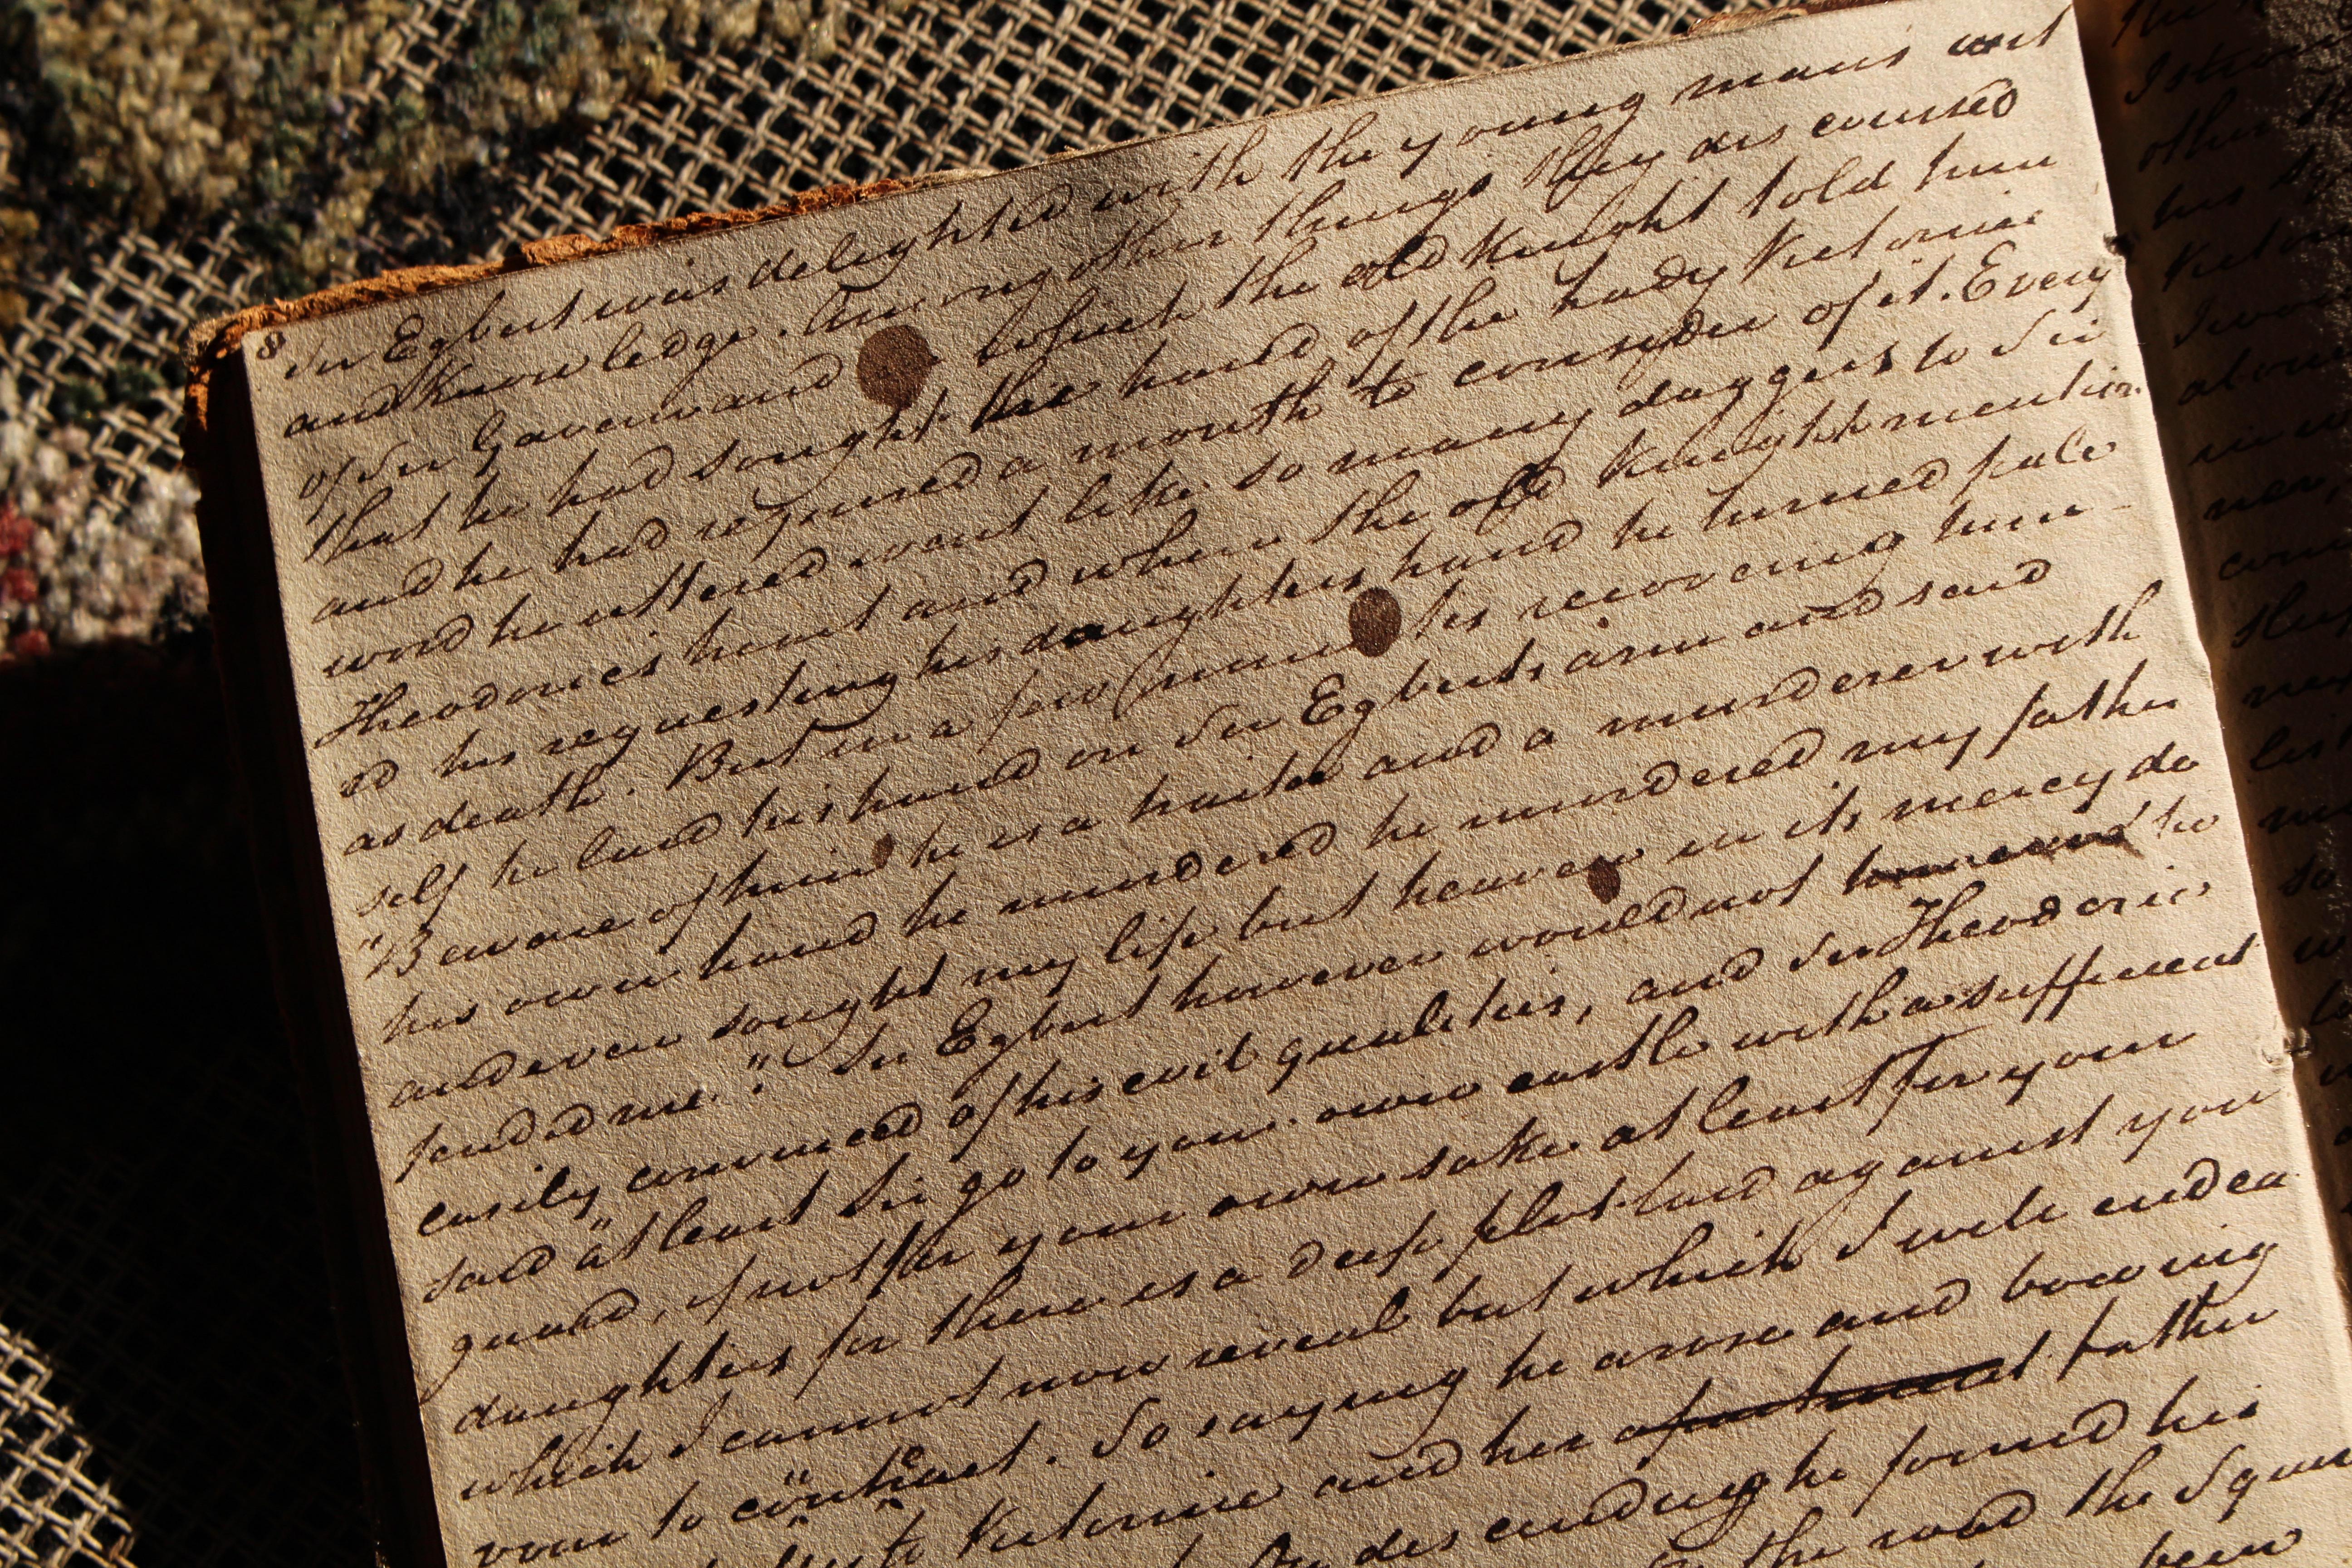 8 Sir Egbert was delighted with the young mans wit
and knowledge. Among other things they discoursed
of Sir Gavenward which the old Knight told him
that he had sought the hand of the Lady Victorine
and he had required a month to consider of it. Every
word he uttered went like so many daggers to Sir
Theodorics heart and when the old Knight mention
ed his requesting his daughters hand he turned pale
as death. But in a few minutes recovering him-
self he laid his hand on Sir Egberts arm and said
"Beware of him he is a traitor and a murderer with
his own hand he murdered he murdered my father
and even sought my life but heaven in its mercy de
fended me." Sir Egbert however would not be
easily convinced of his evil qualities, and Sir Theodoric
said "at least Sir go to your own castle with a sufficient
guard, if not for your own sake at least for your
daughters for there is a deep plot laid against you
which I cannot now reveal but which I will endea
vour to contract". So saying he arose and bowing
to Victorine and her apartment father
descending he found his
the road the Squire
been